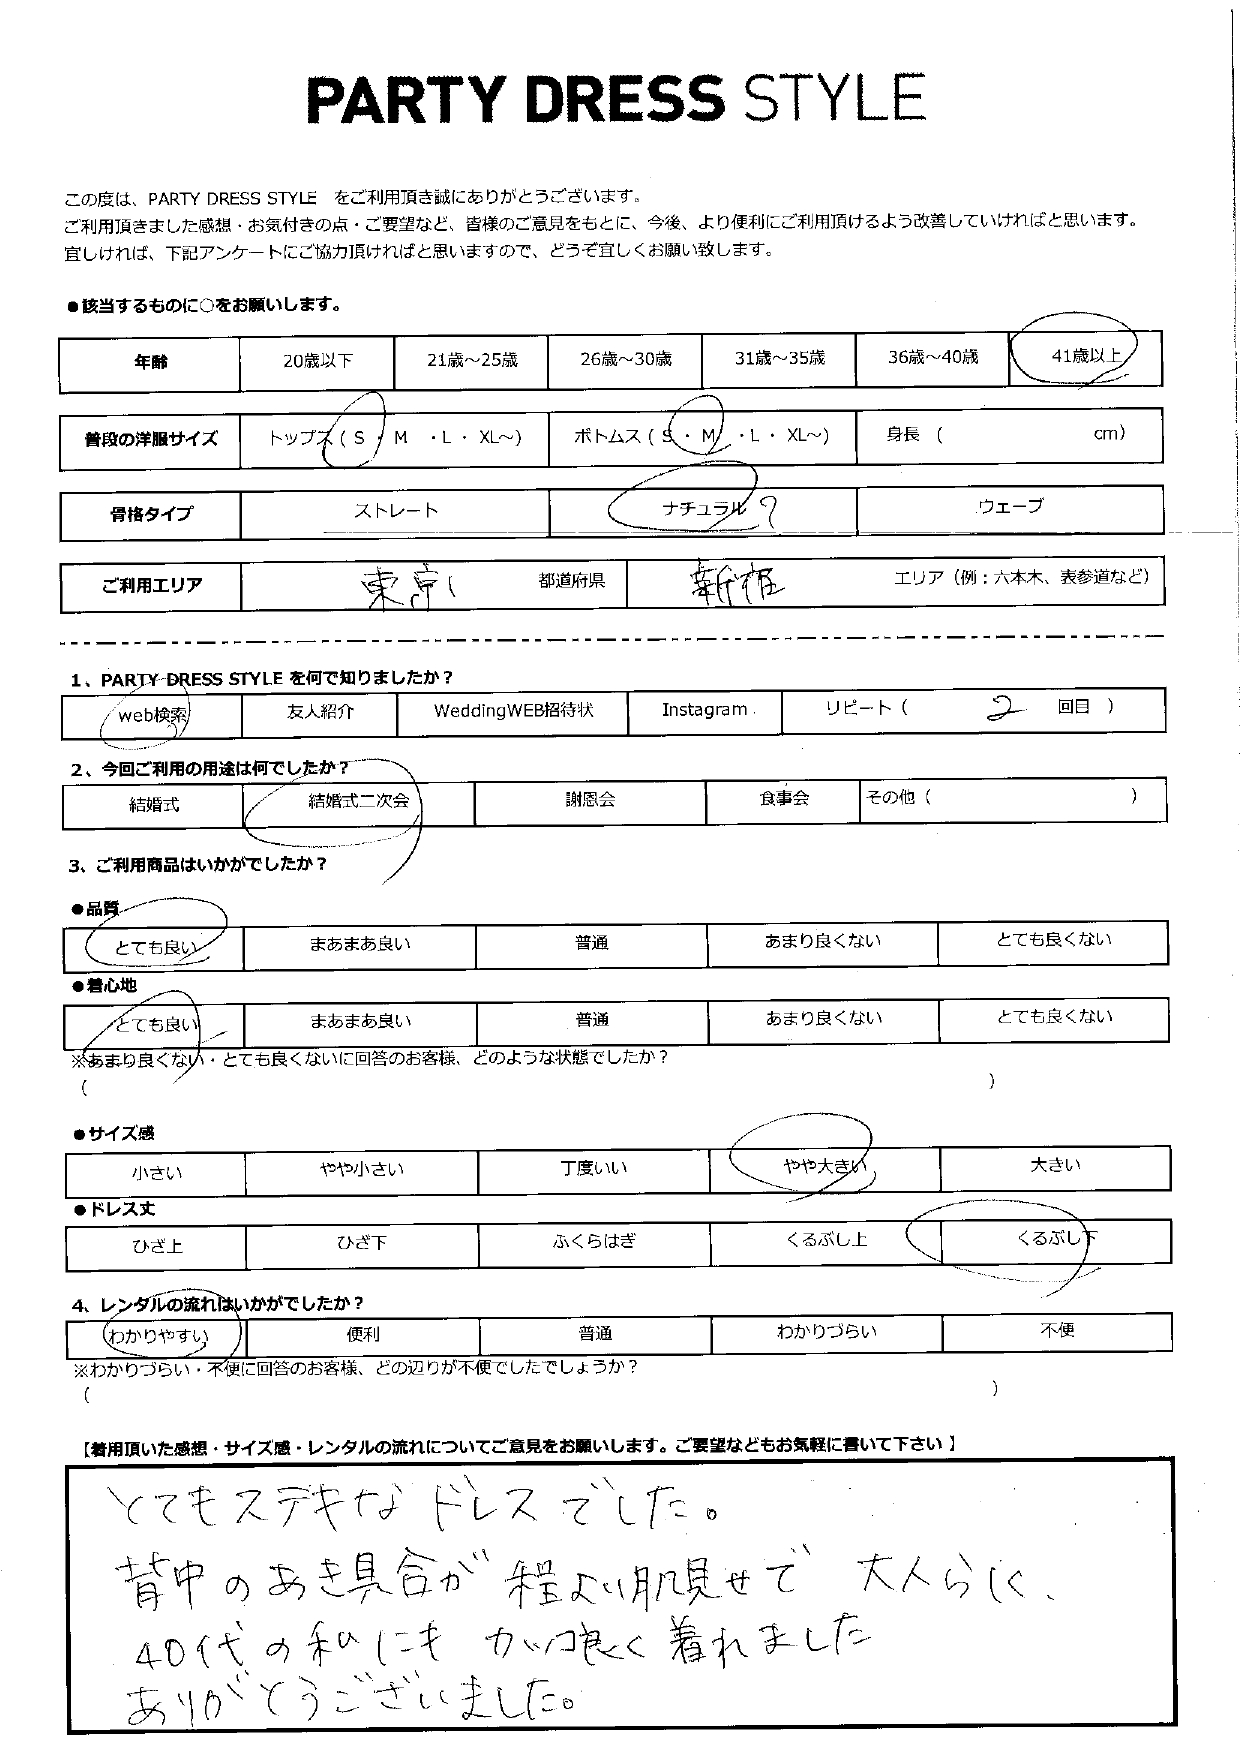 PARTY DRESS STYLE
この度は、PARTY DRESS STYLE をご利用頂き誠にありがとうございます。
ご利用頂きました感想・お気付きの点・ご要望など、皆様のご意見をもとに、今後、より便利にご利用頂けるよう改善していければと思います。
宜しければ、下記アンケートにご協力頂ければと思いますので、どうぞ宜しくお願い致します。
●該当するものに○をお願いします。
年齢 20歳以下 21歳～25歳 26歳～30歳 31歳～35歳 36歳～40歳 41歳以上
普段の洋服サイズ トップス（ S ・ M ・L・ XL～） ボトムス（ S ・ M ・L・ XL～） 身長 （ cm）
骨格タイプ ストレート ナチュラル ? ウェーブ
ご利用エリア 東京 都道府県 新宿 エリア（例：六本木、表参道など）
1、PARTY DRESS STYLE を何で知りましたか？
web検索 友人紹介 WeddingWEB招待状 Instagram リピート（ 2 回目 ）
2、今回ご利用の用途は何でしたか？
結婚式 結婚式二次会 謝恩会 食事会 その他（ ）
3、ご利用商品はいかがでしたか？
●品質
とても良い まあまあ良い 普通 あまり良くない とても良くない
●着心地
とても良い まあまあ良い 普通 あまり良くない とても良くない
※あまり良くない・とても良くないに回答のお客様、どのような状態でしたか？
（ ）
●サイズ感
小さい やや小さい 丁度いい やや大きい 大きい
●ドレス丈
ひざ上 ひざ下 ふくらはぎ くるぶし上 くるぶし下
4、レンタルの流れはいかがでしたか？
わかりやすい 便利 普通 わかりづらい 不便
※わかりづらい・不便に回答のお客様、どの辺りが不便でしたでしょうか？
（ ）
【着用頂いた感想・サイズ感・レンタルの流れについてご意見をお願いします。ご要望などもお気軽に書いて下さい 】
とてもステキなドレスでした。
背中のあき具合が程よい肌見せで 大人らしく、
40代の私にもカッコ良く着れました
ありがとうございました。